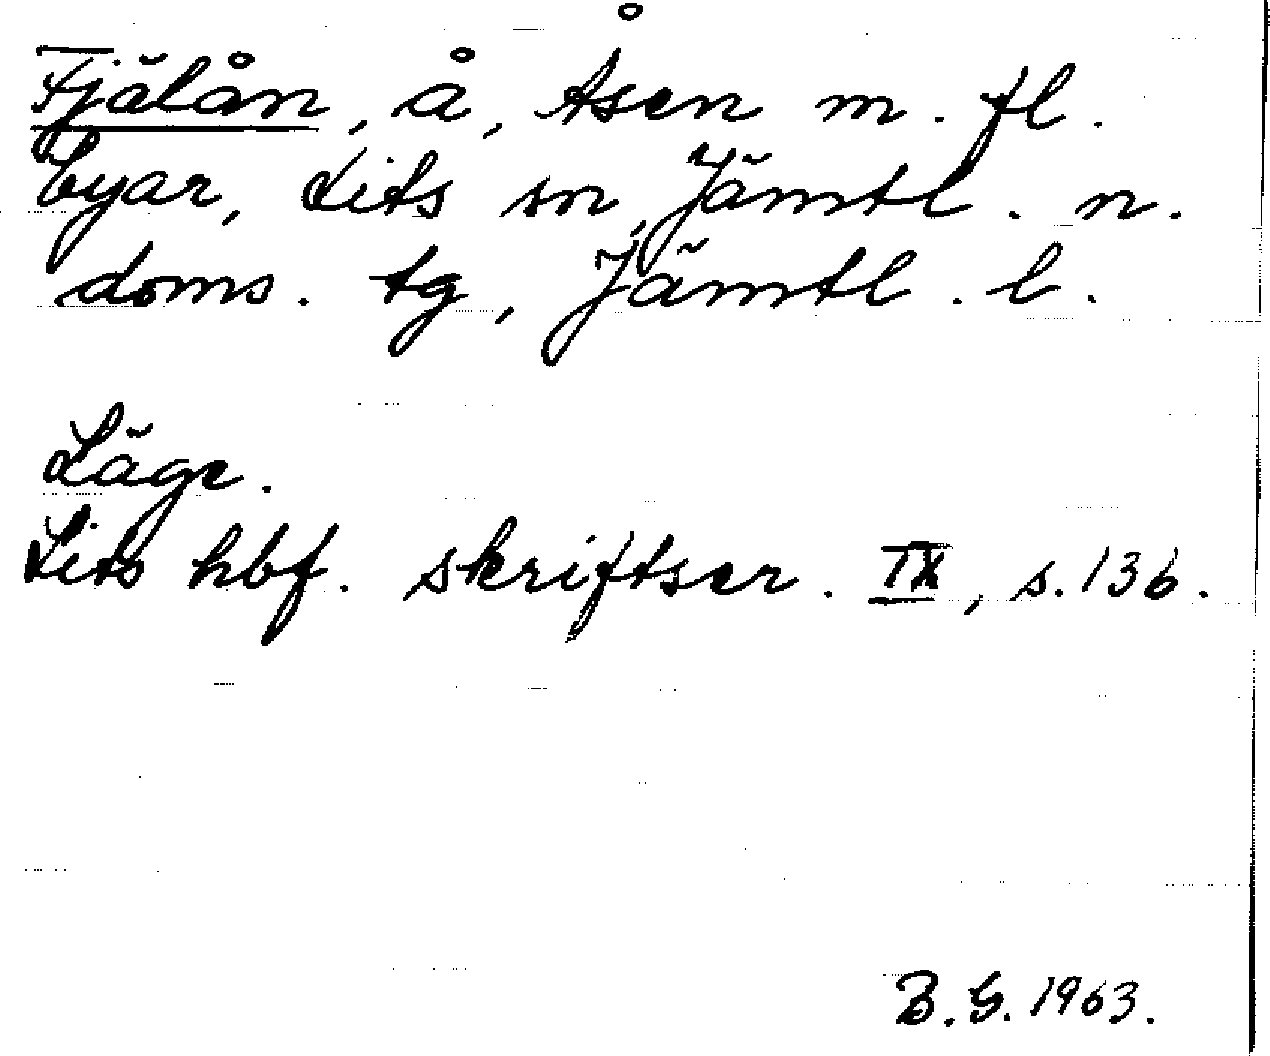 Fjälån, å, Åsen m. fl.
byar, Lits sn, Jämtl. n.
doms. tg, Jämtl. l.
Läge.
Lits hbf. skriftser. IX, s. 136.
B. G. 1963.